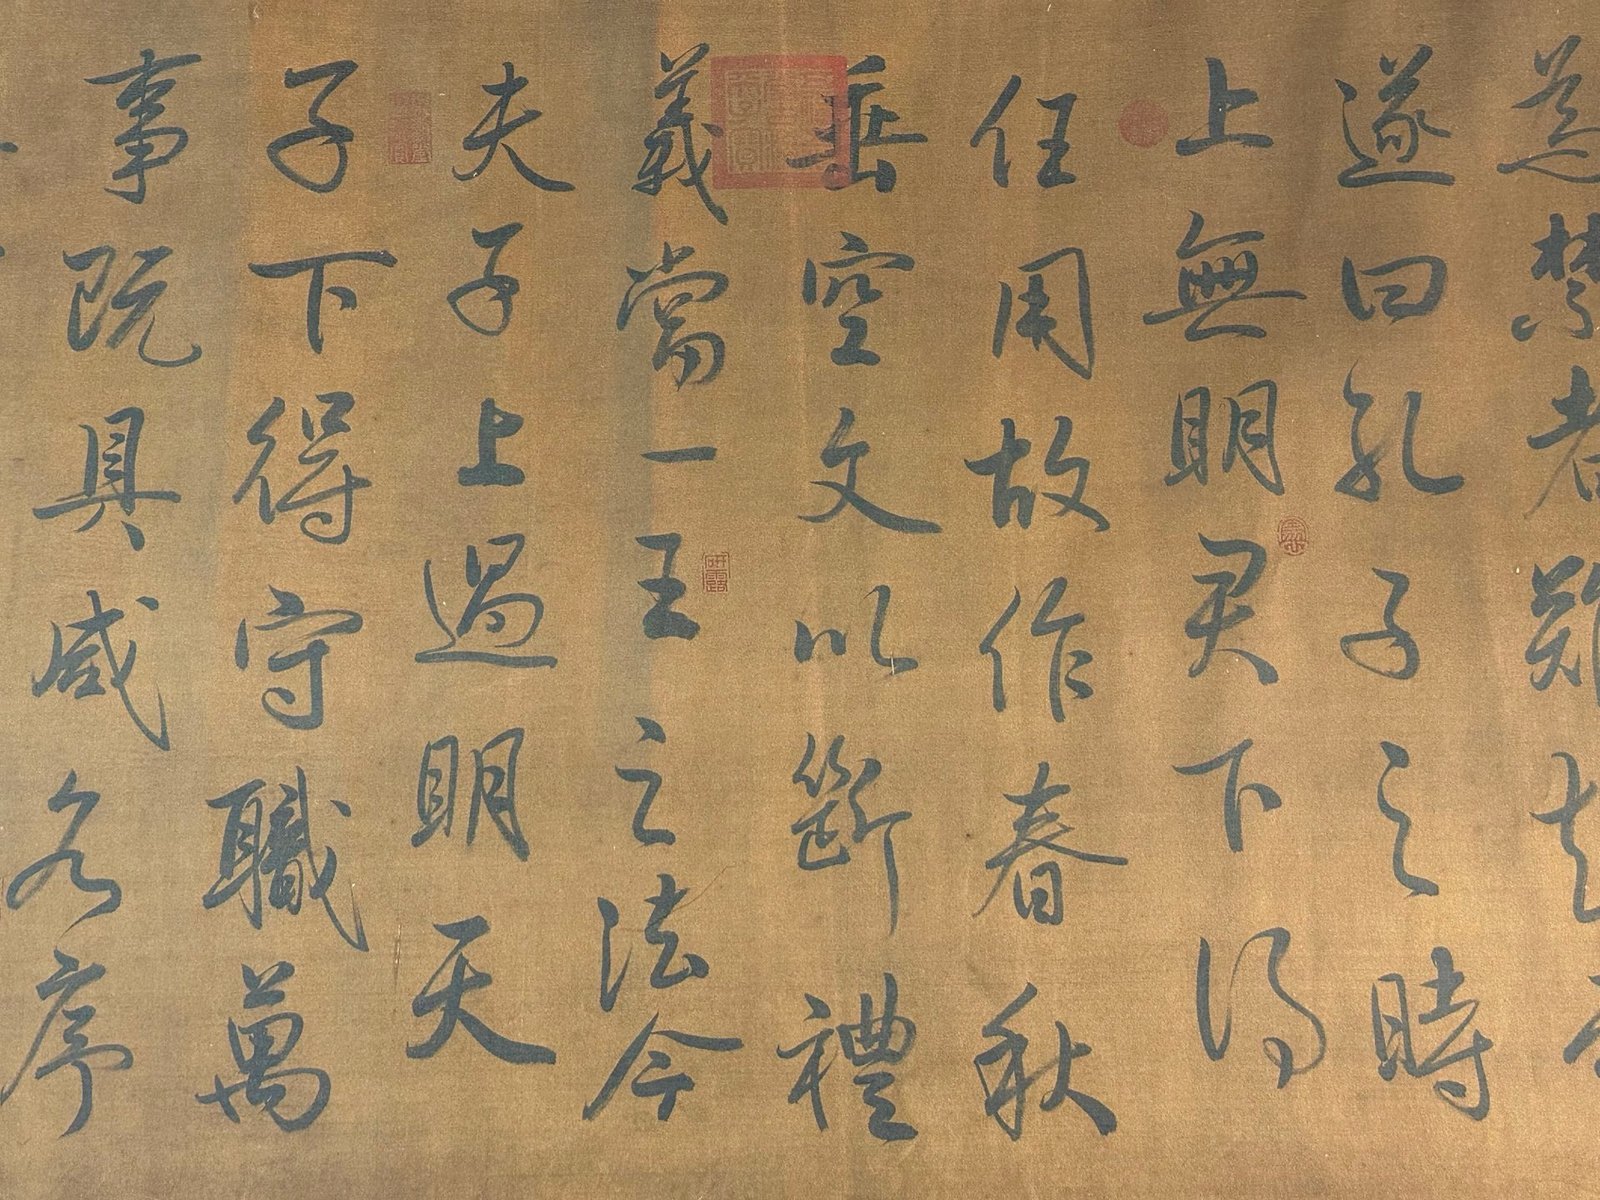 為禁者難知
遂曰孔子之時
上無明君下得
任用故作春秋
垂空文以斷禮
義當一王之法今
夫子上遇明天
子下得守職萬
事既具咸各序